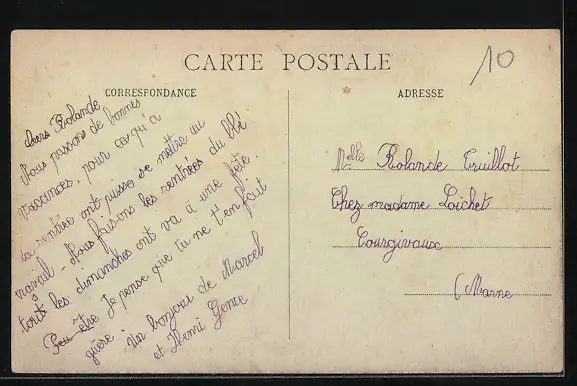 CARTE POSTALE
10
CORRESPONDANCE
ADRESSE
chers Rolande
Nous passons de bonnes
vacances, pour ce qu'à
la rentrée ont puisse se mettre au
travail - Nous faisons les rentrées du blé
tous les dimanches ont va à une fête.
Peu être Je pense que tu ne t'en fait
guère
Un bonjour de Marcel
et Henri Gence
Melle Rolande Truillot
Chez madame Loichet
Courgivaux
(Marne